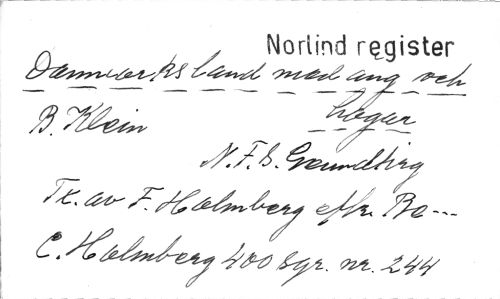 Norlind register
Danmarks land med äng och
hagar
B. Klein
N.F.S. Grundtvig
Tx. av F. Holmberg eftr. Be---
C. Holmberg 400 sgr. nr. 244